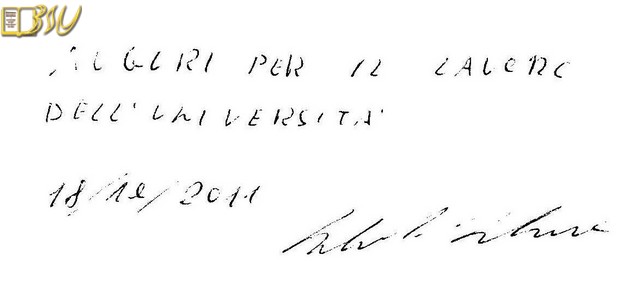 BSU
AUGURI PER IL LAVORO
DELL'UNIVERSITA'
18/10/2011